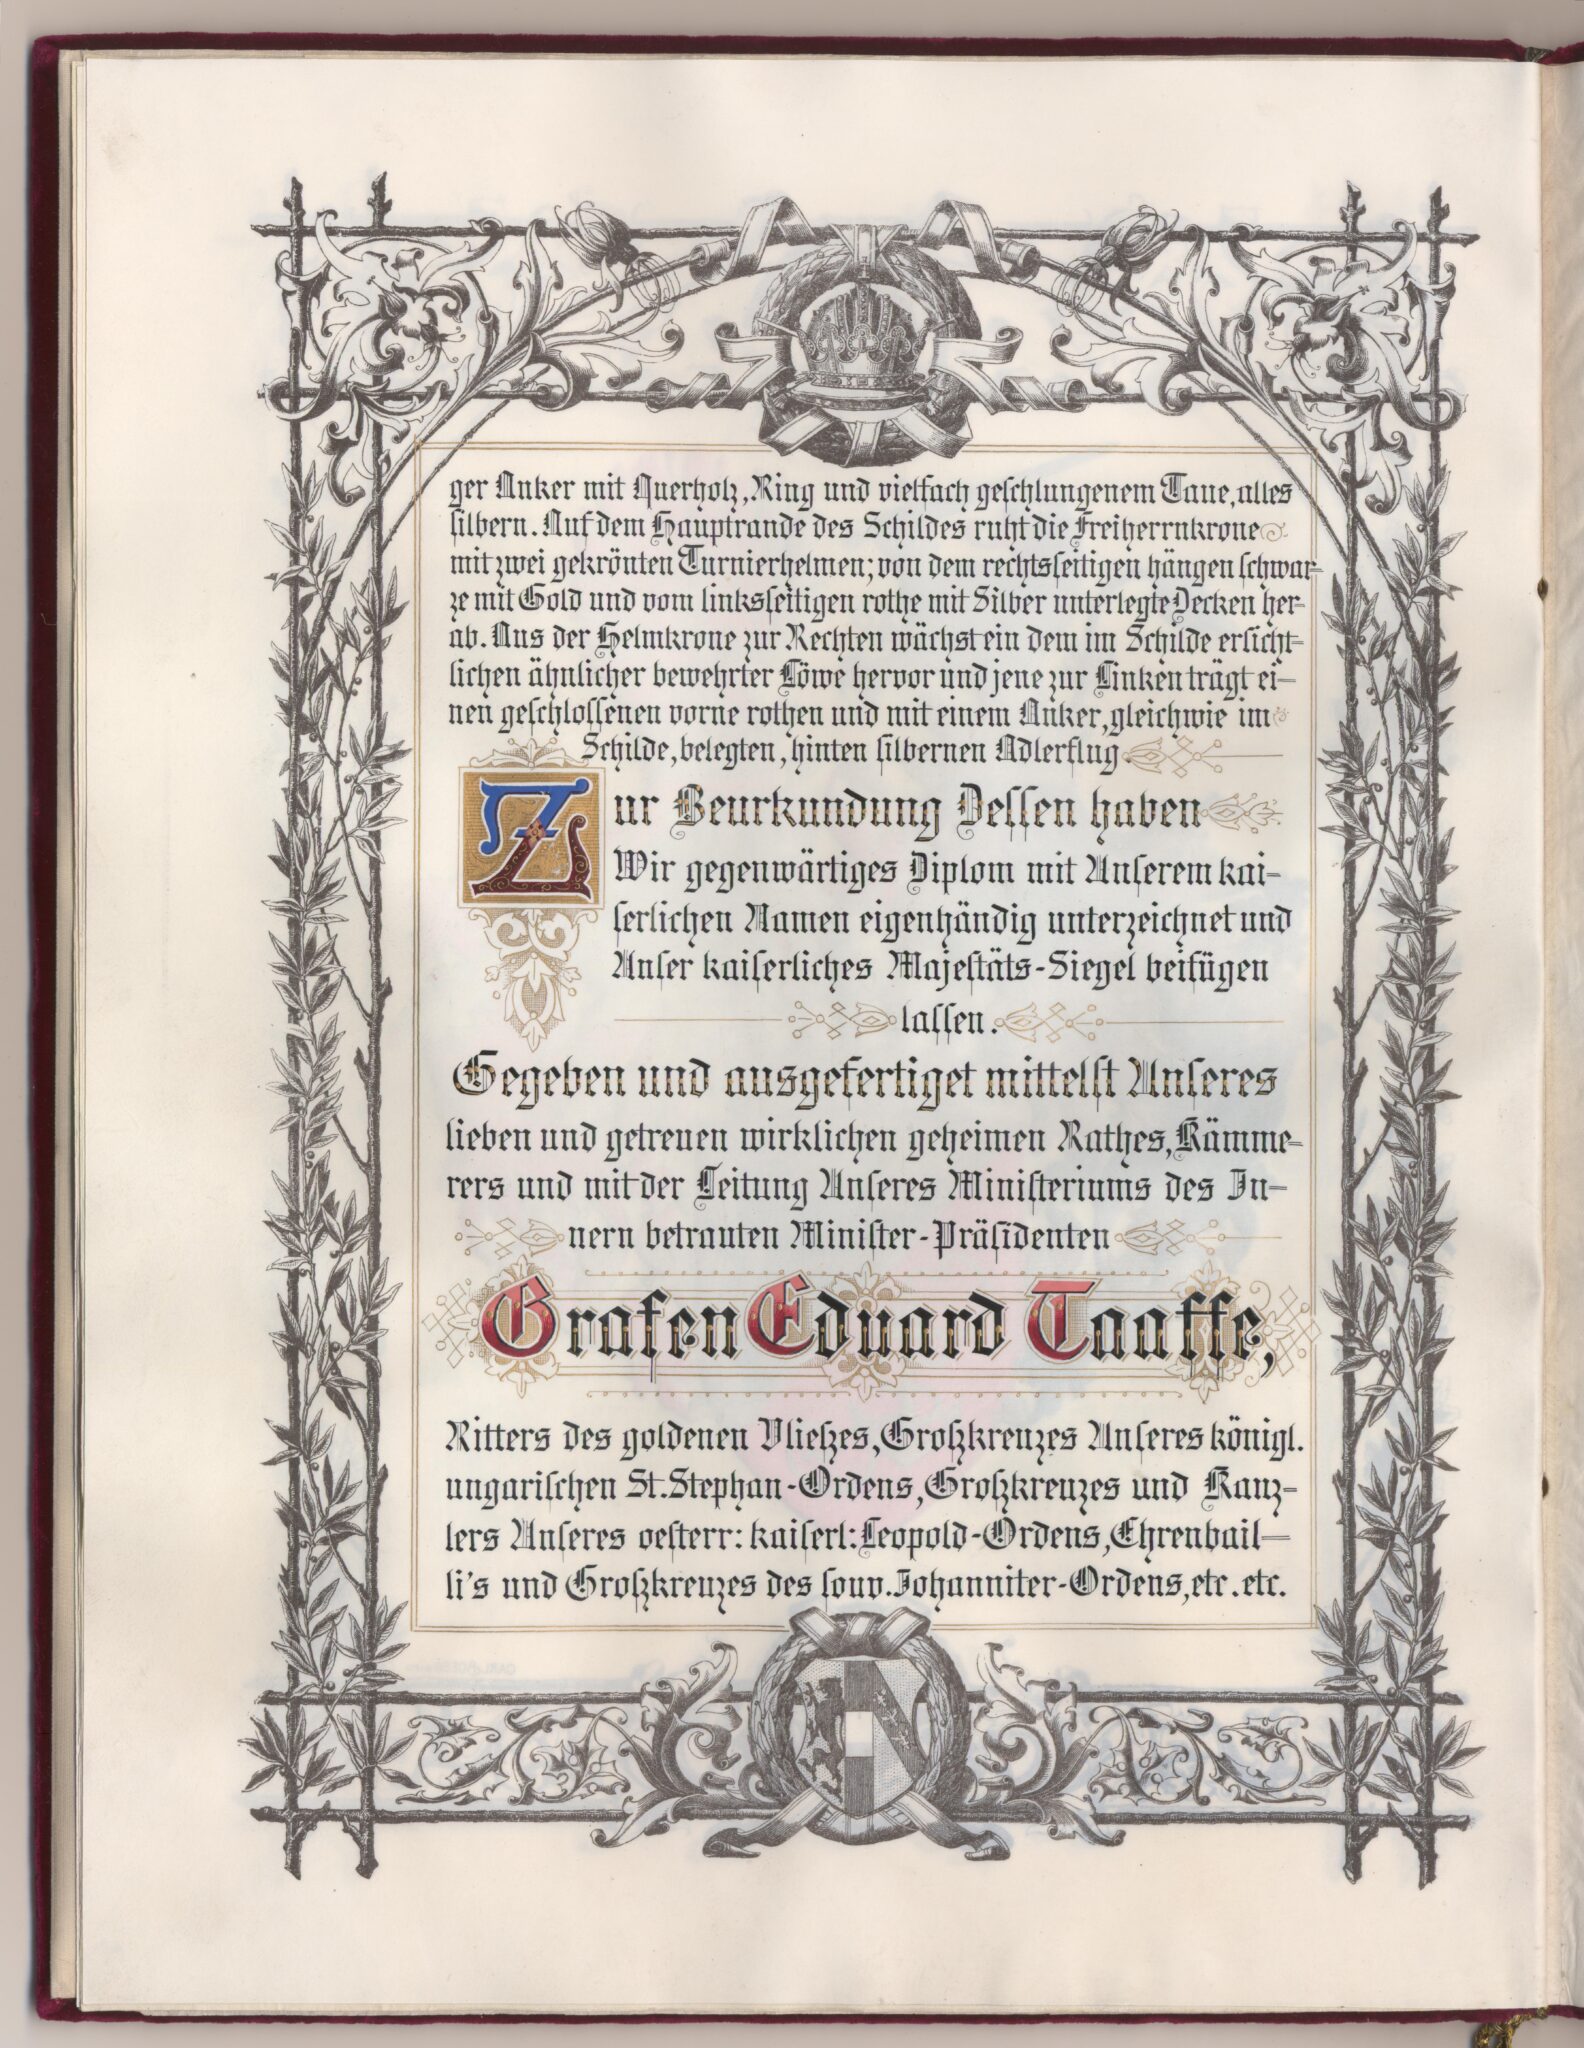 ger Anker mit Querholz, Ring und vielfach geschlungenem Taue, alles
silbern. Auf dem Hauptrande des Schildes ruht die Freiherrnkrone
mit zwei gekrönten Turnierhelmen; von dem rechtsseitigen hängen schwar-
ze mit Gold und vom linksseitigen rothe mit Silber unterlegte Decken her-
ab. Aus der Helmkrone zur Rechten wächst ein dem im Schilde ersicht-
lichen ähnlicher bewehrter Löwe hervor und jene zur Linken trägt ei-
nen geschlossenen vorne rothen und mit einem Anker, gleichwie im
Schilde, belegten, hinten silbernen Adlerflug
Zur Beurkundung Dessen haben
Wir gegenwärtiges Diplom mit Unserem kai-
serlichen Namen eigenhändig unterzeichnet und
Unser kaiserliches Majestäts-Siegel beifügen
lassen.
Gegeben und ausgefertiget mittelst Unseres
lieben und getreuen wirklichen geheimen Rathes, Kämme-
rers und mit der Leitung Unseres Ministeriums des In-
nern betrauten Minister-Präsidenten
Grafen Eduard Taaffe,
Ritters des goldenen Vließes, Großkreuzes Unseres königl.
ungarischen St. Stephan-Ordens, Großkreuzes und Kanz-
lers Unseres oesterr: kaiserl: Leopold-Ordens, Ehrenbail-
li's und Großkreuzes des souv. Johanniter-Ordens, etc. etc.